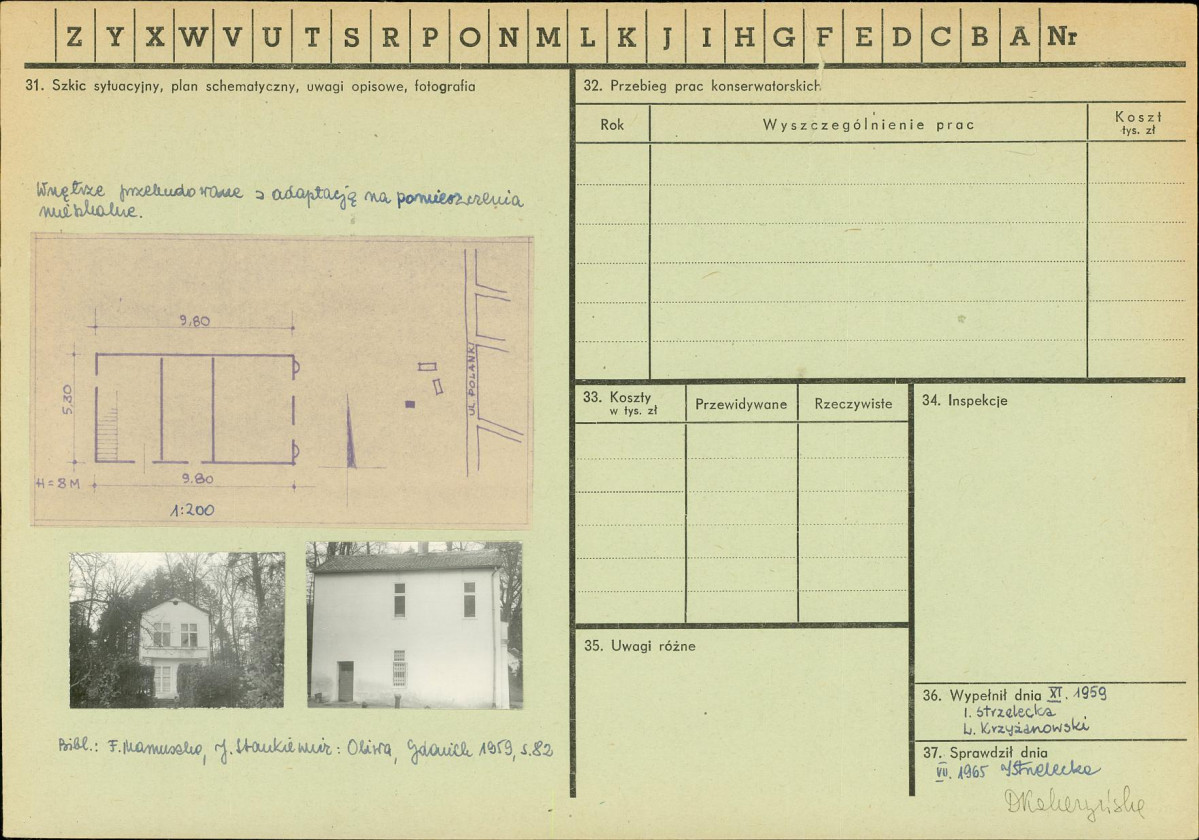 Z Y X W V U T S R P O N M L K J I H G F E D C B A Nr
31. Szkic sytuacyjny, plan schematyczny, uwagi opisowe, fotografia
Wnętrze przebudowane z adaptacją na pomieszczenia
mieszkalne.
9,80
5,30
UL POLANKI
H = 8 M
9.80
1:200
Bibl.: F. Mamuszko, J. Stankiewicz: Oliwa, Gdańsk 1959, s. 82
32. Przebieg prac konserwatorskich
Rok
Wyszczególnienie prac
Koszt
tys. zł
33. Koszty
w tys. zł
Przewidywane
Rzeczywiste
34. Inspekcje
35. Uwagi różne
36. Wypełnił dnia XI. 1959
I. Strzelecka
L. Krzyżanowski
37. Sprawdził dnia
VII. 1965 IStrzelecka